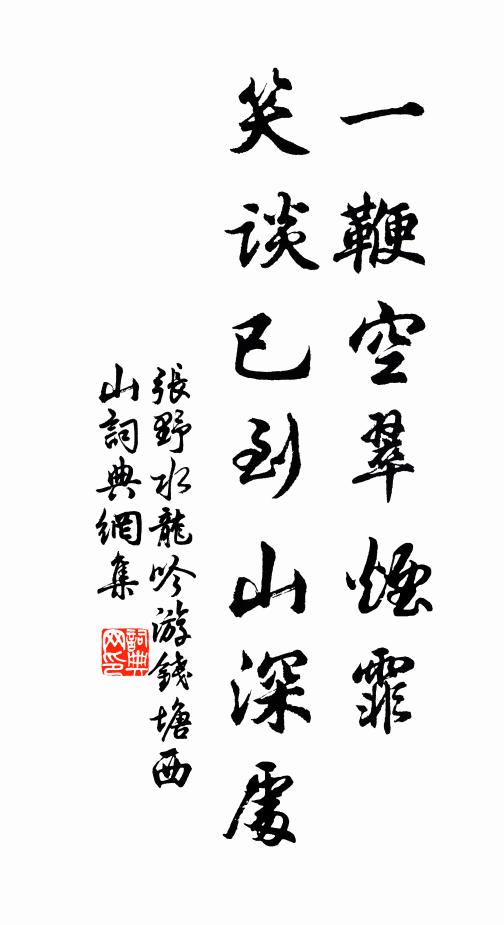 一鞭空翠煙霏
笑談已到山深處
張野水龍吟游錢塘西
山詞典網集
詞典
网印